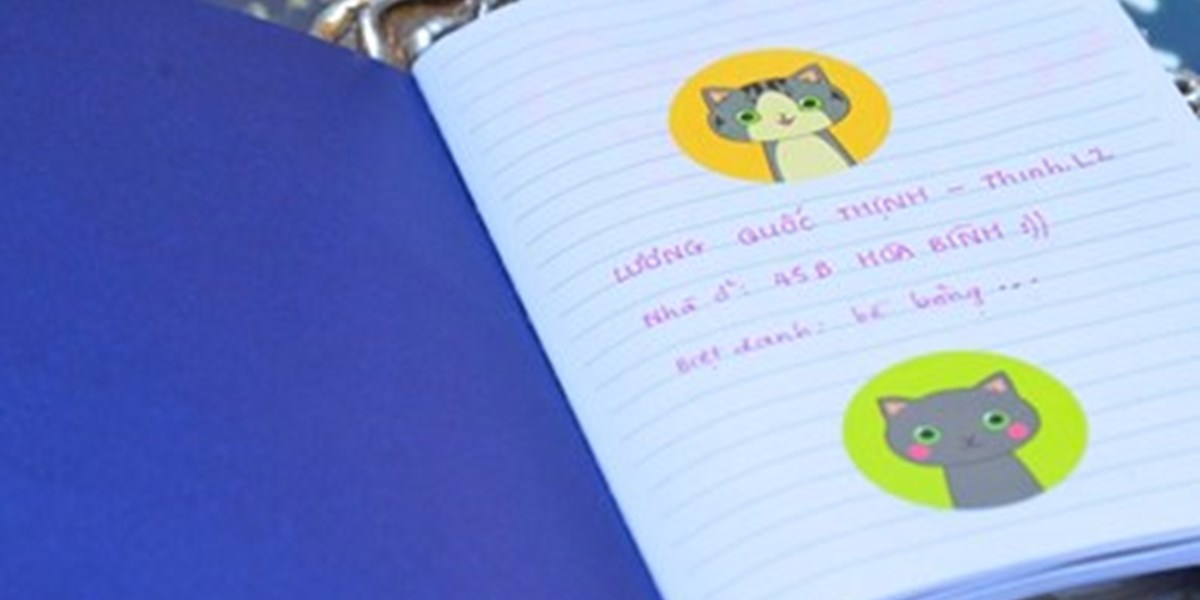 LƯƠNG QUỐC THỊNH - Thịnh.LZ
Nhà ở: 45B HOÀ BÌNH :))
Biệt danh: bé bỏng ...